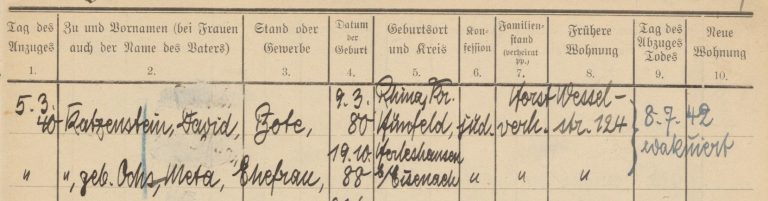 Tag des Anzuges Zu und Vornamen (bei Frauen auch der Name des Vaters) Stand oder Gewerbe Datum der Geburt Geburtsort und Kreis Konfession Familienstand (verheirat pp.) Frühere Wohnung Tag des Abzuges Todes Neue Wohnung
1. 2. 3. 4. 5. 6. 7. 8. 9. 10.
5. 3. 9. 3. Rhina, Kr. Horst Wessel-
40 Katzenstein, David, Bote, 80 Hünfeld, jüd. verh. str. 124 8.7.42
19.10. Herleshausen evakuiert
" ", geb. Ochs, Meta, Ehefrau, 88 b/Eisenach " " "